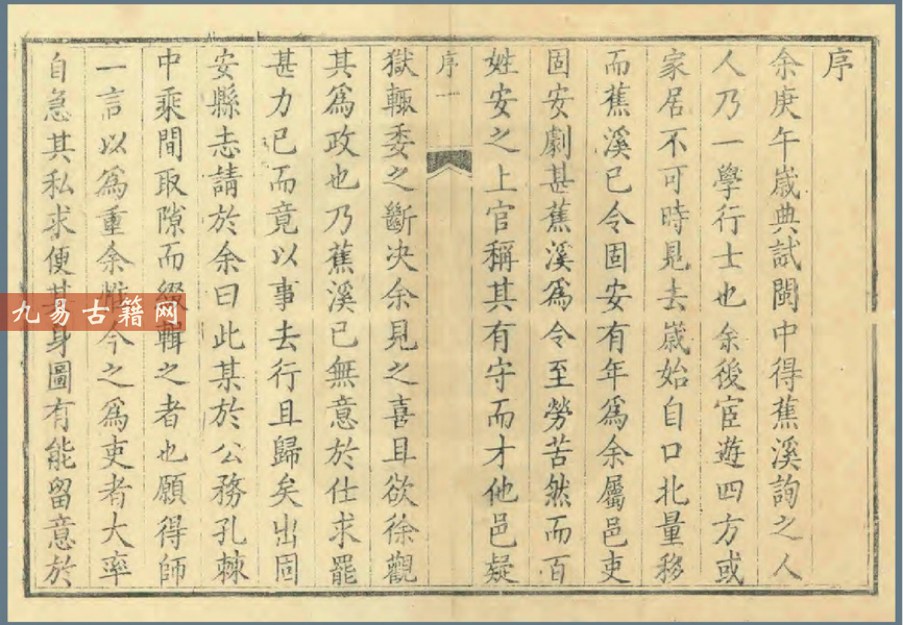 序
余庚午歲典試閩中得蕉溪詢之人
人乃一學行士也余後宦遊四方或
家居不可時見去歲始自口北量移
而蕉溪已令固安有年爲余屬邑吏
固安劇甚蕉溪爲令至勞苦然而百
姓安之上官稱其有守而才他邑疑
序一
獄輒委之斷決余見之喜且欲徐觀
其爲政也乃蕉溪已無意於仕求罷
甚力已而竟以事去行且歸矣出固
安縣志請於余曰此某於公務孔棘
中乘間取隙而綴輯之者也願得師
一言以爲重余惟今之爲吏者大率
自急其私求便其身圖有能留意於
九易古籍网